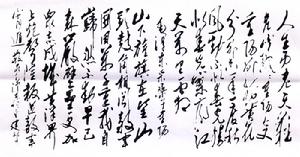 人生易老天难
老岁岁重阳今又
重阳战地黄花
分外香一年一度秋
风劲不似春光胜
似春光寥廓江
天万里霜
山下旌旗在望山
头鼓角相闻敌军
围困万千重我自
岿然不动早已
森严壁垒更加
众志成城黄洋界
上炮声隆报道敌军
宵遁